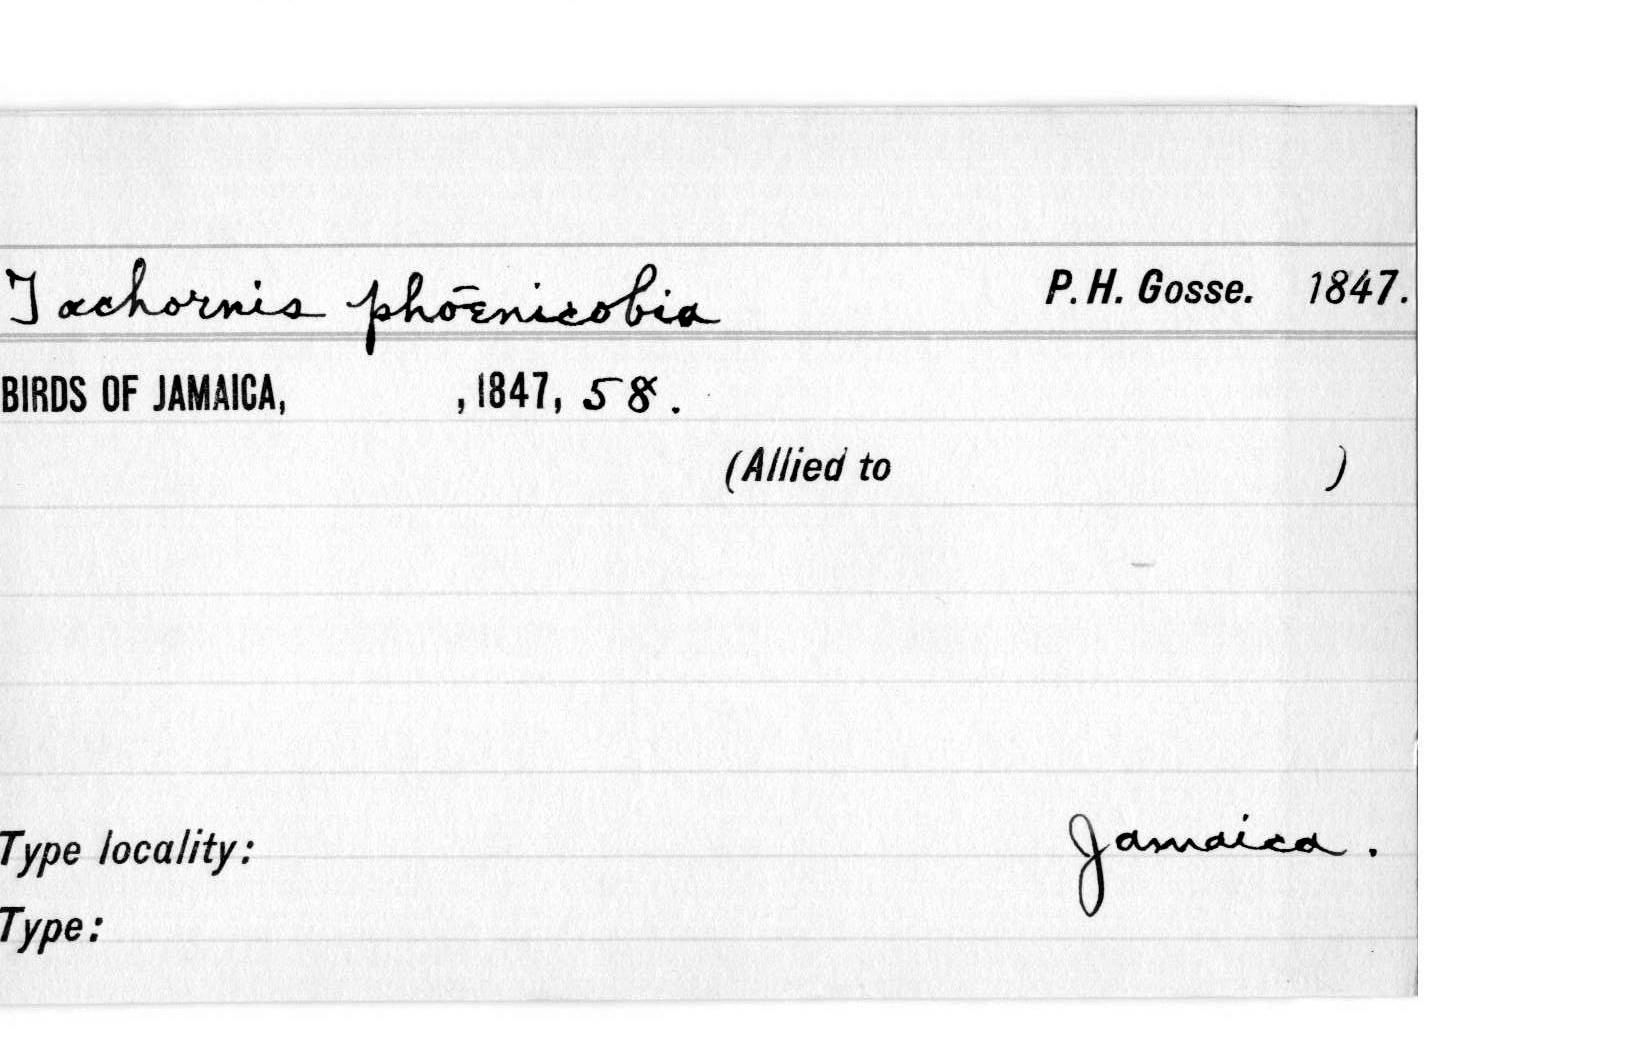 Tachornis phœnicobia P. H. Gosse. 1847.
BIRDS OF JAMAICA, , 1847, 58.
(Allied to )
Type locality: Jamaica.
Type: